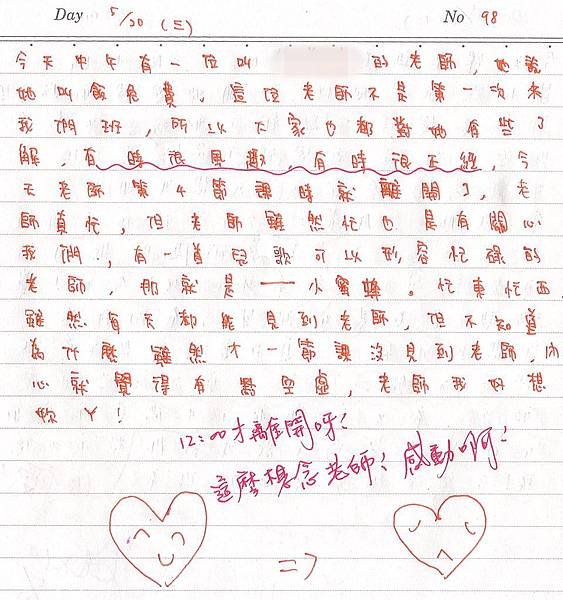 Day 5/20 (三) No 98
今天中午有一位叫 的老師，她說
她叫飯免費，這位老師不是第一次來
我們班，所以大家也都對她有些了
解，有時很風趣，有時很正經，今
天老師第4節課時就離開了，老
師真忙，但老師雖然忙也是有關心
我們，有一首兒歌可以形容忙碌的
老師，那就是——小蜜蜂。忙東忙西，
雖然每天都能見到老師，但不知道
為什麼雖然才一節課沒見到老師，內
心就覺得有點空虛，老師我好想
妳ㄚ！
12:00才離開呀！
這麼想念老師！感動啊！
=>